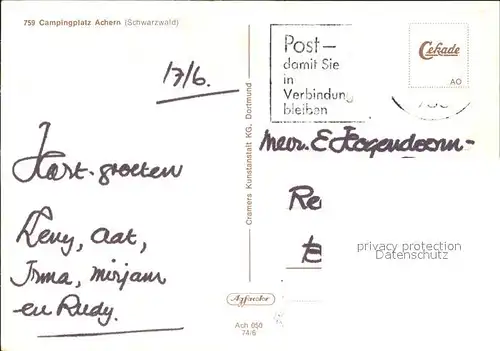 759 Campingplatz Achern (Schwarzwald)
17/6.
Hart. groeten
Leny, Aat,
Irma, Mirjam
en Rudy.
Cramers Kunstanstalt KG, Dortmund
Ach 050
74/6
Post—
damit Sie
in
Verbindung
bleiben
Cekade
AO
Mevr. E Hogendoorn-
Re
privacy protection
Datenschutz